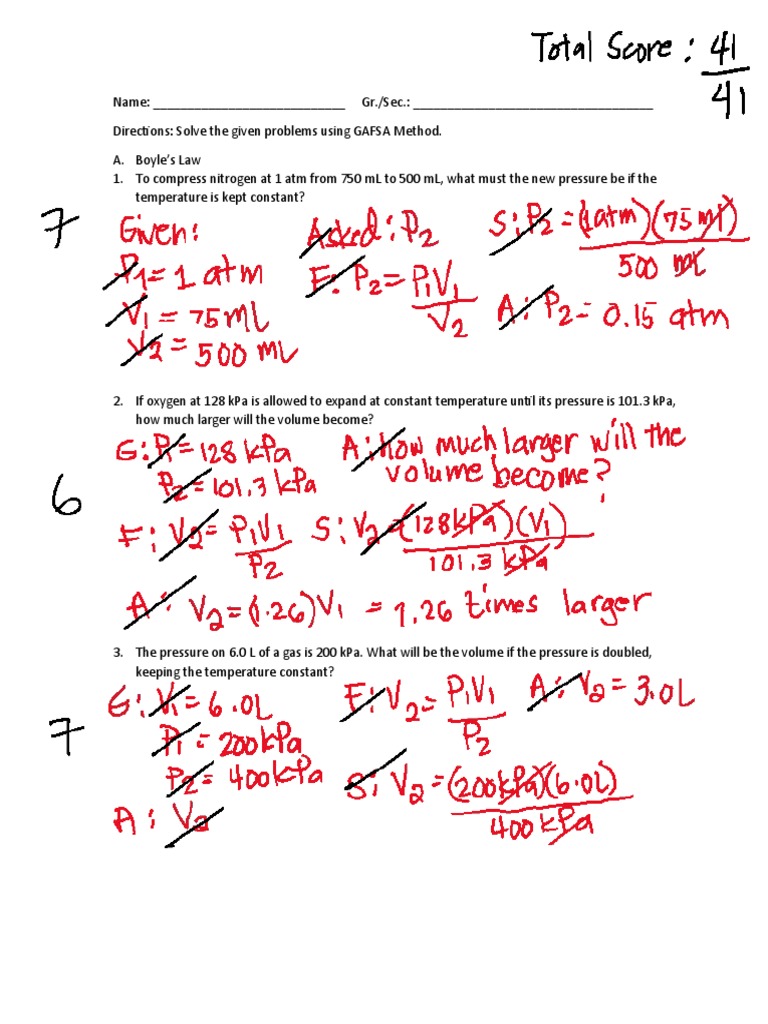 Total Score: 41/41
Name: ____________________________ Gr./Sec.: ___________________________________
Directions: Solve the given problems using GAFSA Method.
A. Boyle's Law
1. To compress nitrogen at 1 atm from 750 mL to 500 mL, what must the new pressure be if the
temperature is kept constant?
7
Given:
P1 = 1 atm
V1 = 75 mL
V2 = 500 mL
Asked: P2
F: P2 = P1V1/V2
S: P2 = (1 atm)(75 ml)/500 ml
A: P2 = 0.15 atm
2. If oxygen at 128 kPa is allowed to expand at constant temperature until its pressure is 101.3 kPa,
how much larger will the volume become?
6
G: P1 = 128 kPa
P2 = 101.3 kPa
A: how much larger will the
volume become?
F: V2 = P1V1/P2
S: V2 = (128 kPa)(V1)/101.3 kPa
A: V2 = (1.26)V1 = 1.26 times larger
3. The pressure on 6.0 L of a gas is 200 kPa. What will be the volume if the pressure is doubled,
keeping the temperature constant?
7
G: V1 = 6.0L
P1 = 200 kPa
P2 = 400 kPa
A: V2
F: V2 = P1V1/P2
S: V2 = (200 kPa)(6.0L)/400 kPa
A: V2 = 3.0L